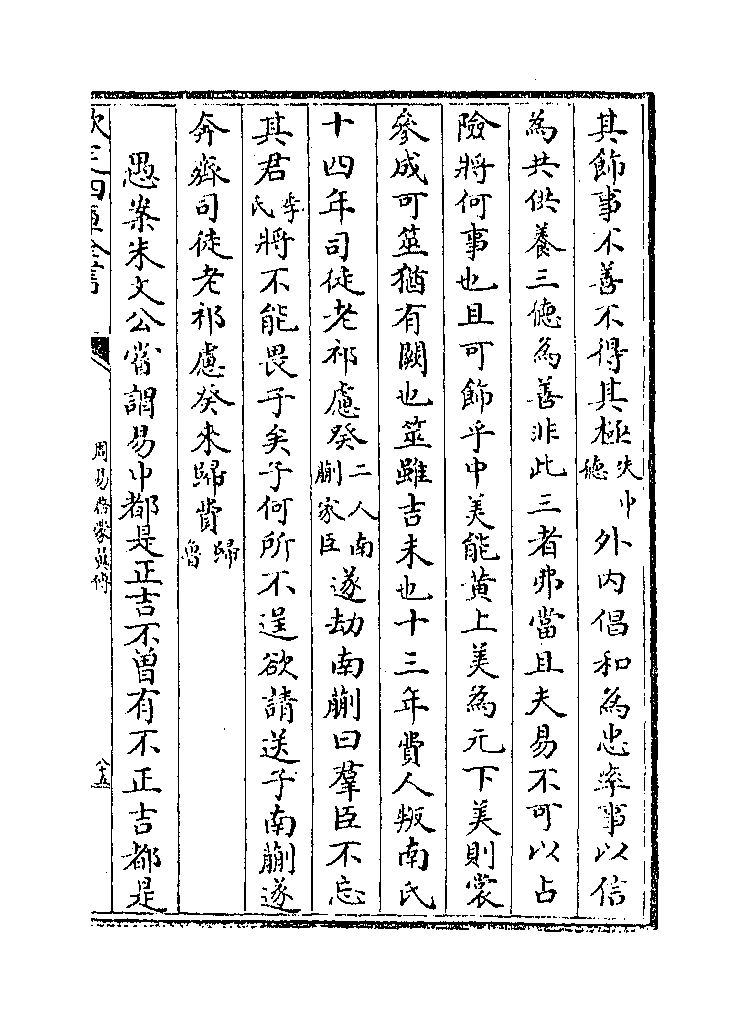 其飾事不善不得其極失中德外内倡和為忠率事以信
為共供養三德為善非此三者弗當且夫易不可以占
險將何事也且可飾乎中美能黄上美為元下美則裳
參成可筮猶有闕也筮雖吉未也十三年費人叛南氏
十四年司徒老祁慮癸二人南蒯家臣遂劫南蒯曰羣臣不忘
其君季氏將不能畏子矣子何所不逞欲請送子南蒯遂
奔齊司徒老祁慮癸來歸費歸魯
愚案朱文公嘗謂易中都是正吉不曽有不正吉都是
欽定四庫全書
周易
八十五